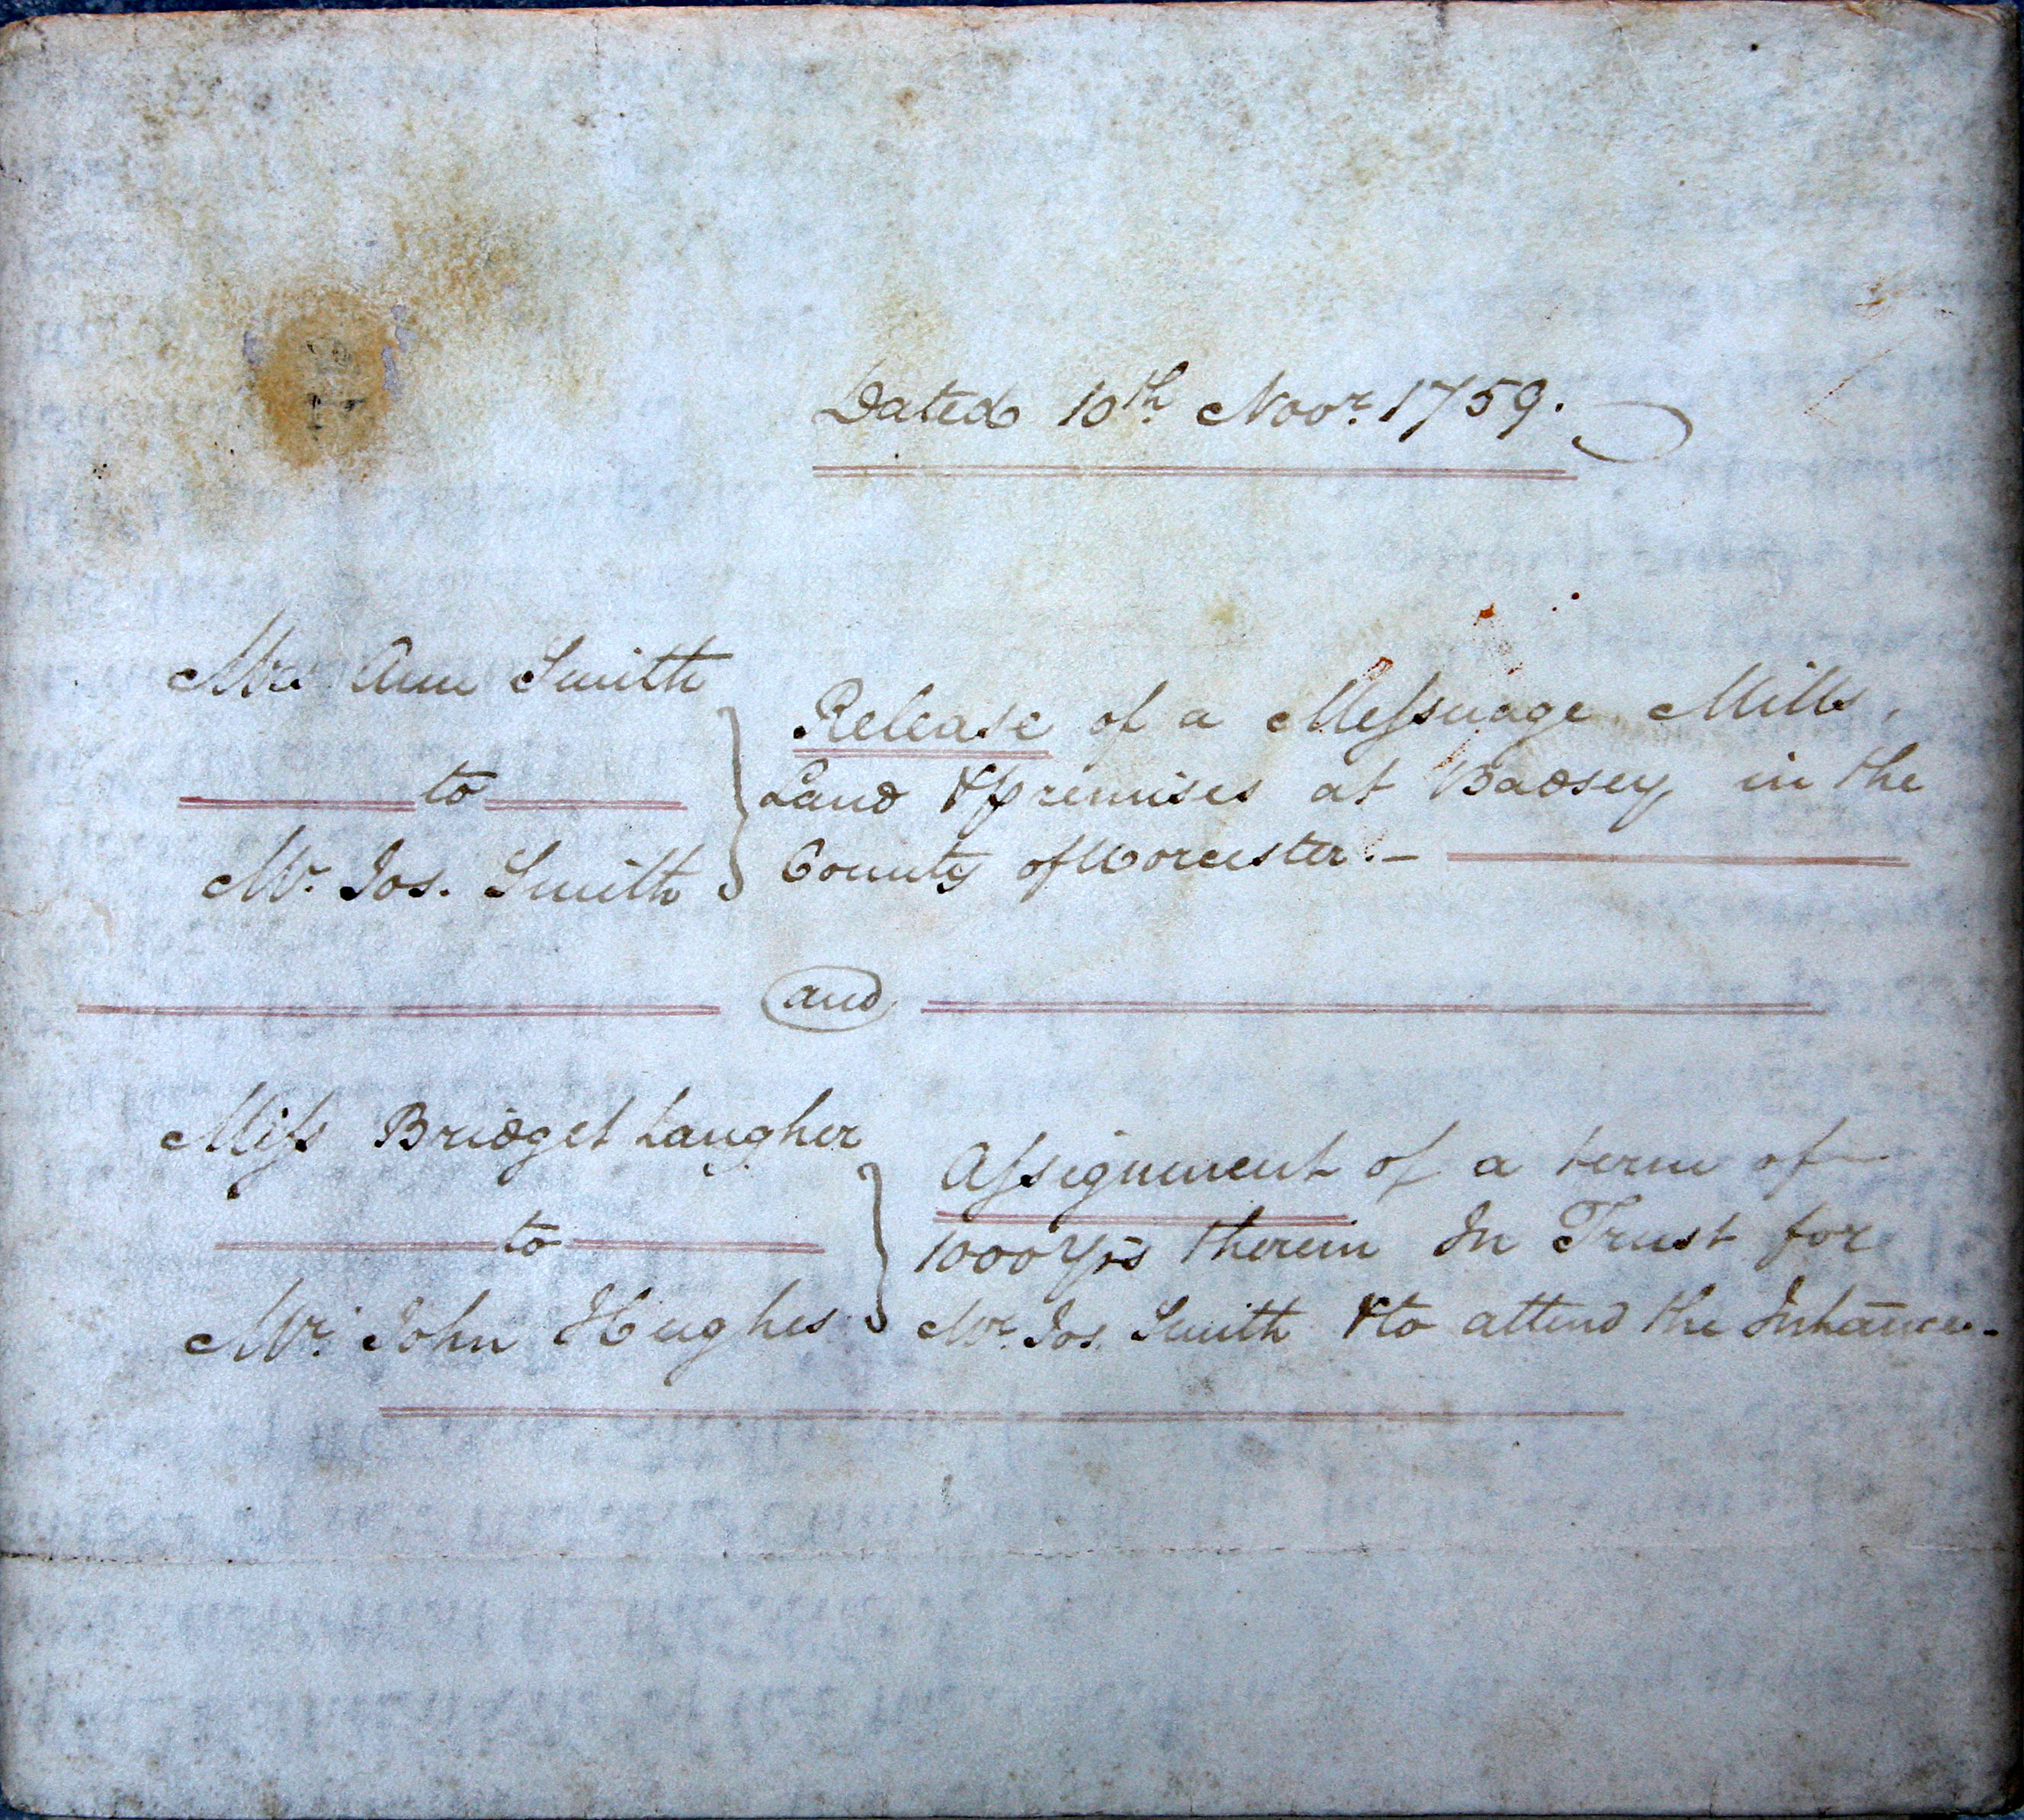 Dated 10th Novr. 1759.
Mrs Ann Smith
to
Mr. Jos. Smith
Release of a Meſsuage Mills,
Land & premises at Badsey in the
County of Worcester. –
and
Miſs Bridget Laugher
to
Mr. John Hughes
Aſsignment of a term of
1000 Yrs therein In Trust for
Mr. Jos. Smith & to attend the